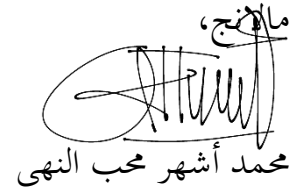 مالانج،
محمد أشهر محب النهى